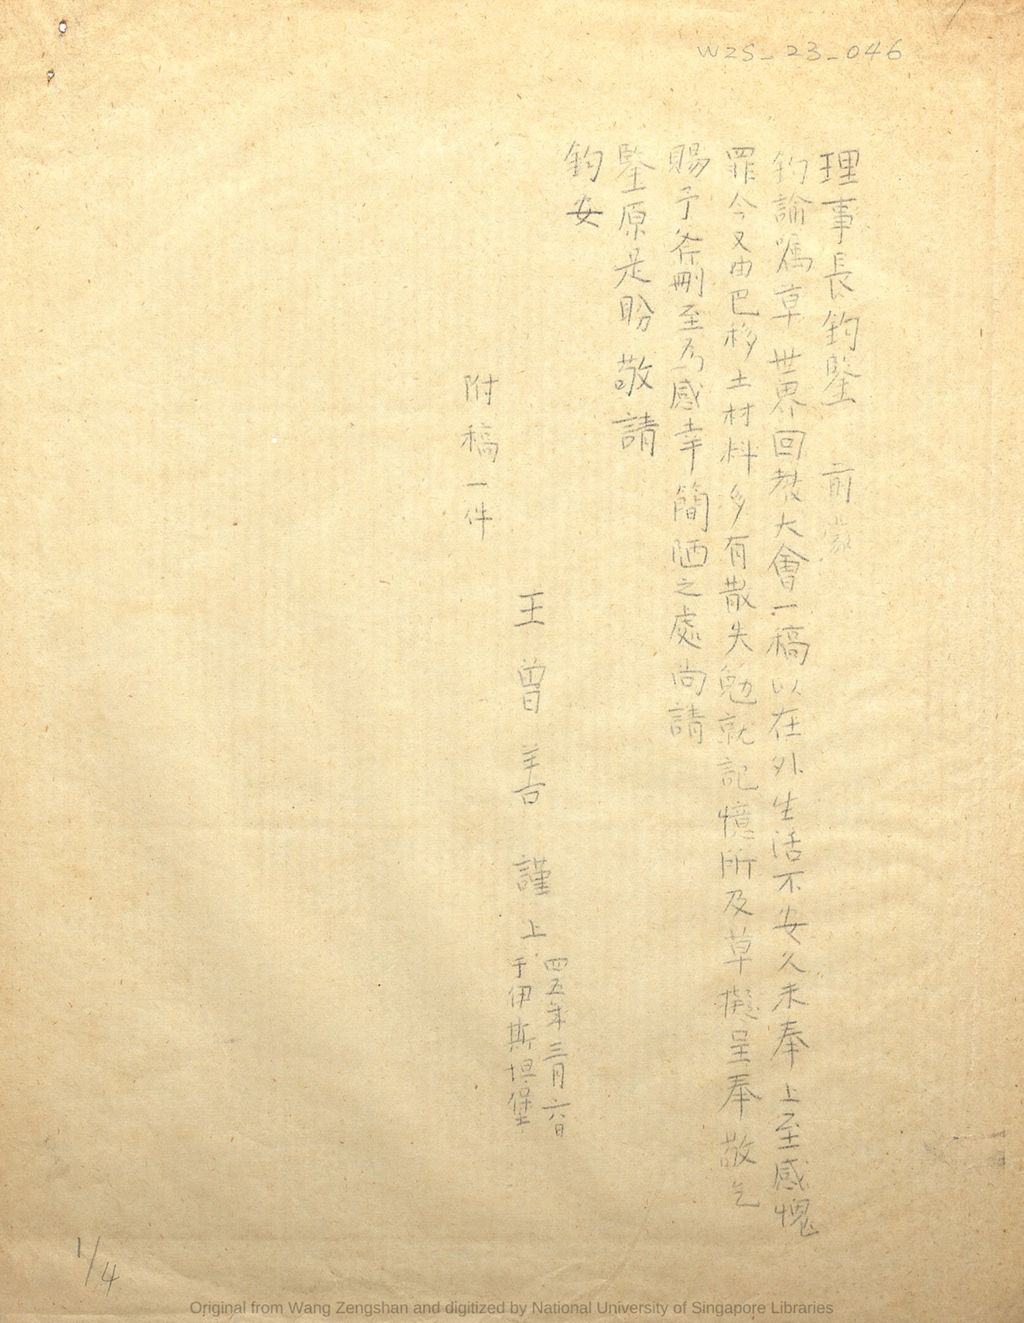 WZS_23_046
理事長鈞鑒 前
鈞諭囑草世界回教大會一稿以在外生活不安久未奉上至感愧
罪今又由巴移土材料多有散失勉就記憶所及草擬呈奉敬乞
賜予斧刪至為感幸簡陋之處尚請
鑒原是盼敬請
鈞安
王曾善 謹上
四五年三月六日
于伊斯坦堡
附稿一件
1/4
Original from Wang Zengshan and digitized by National University of Singapore Libraries